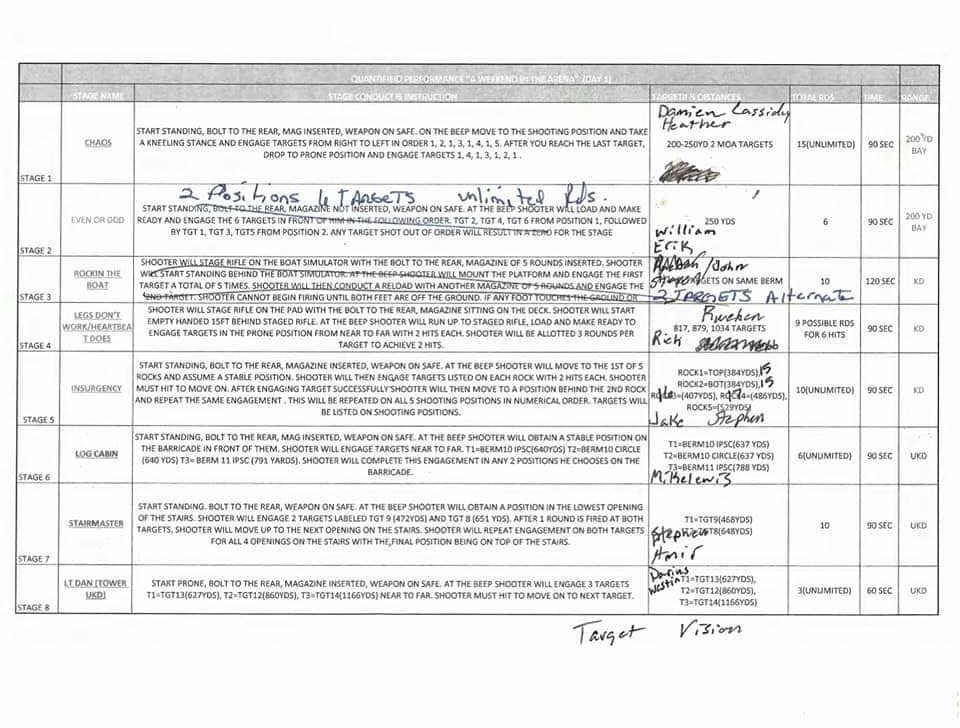 QUANTIFIED PERFORMANCE "A WEEKEND IN THE ARENA" (DAY 1)
STAGE NAME STAGE CONDUCT & INSTRUCTION TARGETS & DISTANCES TOTAL RDS TIME RANGE
STAGE 1
CHAOS
START STANDING, BOLT TO THE REAR, MAG INSERTED, WEAPON ON SAFE. ON THE BEEP MOVE TO THE SHOOTING POSITION AND TAKE
A KNEELING STANCE AND ENGAGE TARGETS FROM RIGHT TO LEFT IN ORDER 1, 2, 1, 3, 1, 4, 1, 5. AFTER YOU REACH THE LAST TARGET,
DROP TO PRONE POSITION AND ENGAGE TARGETS 1, 4, 1, 3, 1, 2, 1 .
Damien Cassidy
Heather
200-250YD 2 MOA TARGETS
15(UNLIMITED)
90 SEC
200 YD
BAY
STAGE 2
EVEN OR ODD
2 Positions 6 TARGETS unlimited Rds.
START STANDING, BOLT TO THE REAR, MAGAZINE NOT INSERTED, WEAPON ON SAFE. AT THE BEEP SHOOTER WILL LOAD AND MAKE
READY AND ENGAGE THE 6 TARGETS IN FRONT OF HIM IN THE FOLLOWING ORDER. TGT 2, TGT 4, TGT 6 FROM POSITION 1, FOLLOWED
BY TGT 1, TGT 3, TGT5 FROM POSITION 2. ANY TARGET SHOT OUT OF ORDER WILL RESULT IN A ZERO FOR THE STAGE
250 YDS
William
Erik
6
90 SEC
200 YD
BAY
STAGE 3
ROCKIN THE
BOAT
SHOOTER WILL STAGE RIFLE ON THE BOAT SIMULATOR WITH THE BOLT TO THE REAR, MAGAZINE OF 5 ROUNDS INSERTED. SHOOTER
WILL START STANDING BEHIND THE BOAT SIMULATOR. AT THE BEEP SHOOTER WILL MOUNT THE PLATFORM AND ENGAGE THE FIRST
TARGET A TOTAL OF 5 TIMES. SHOOTER WILL THEN CONDUCT A RELOAD WITH ANOTHER MAGAZINE OF 5 ROUNDS AND ENGAGE THE
2ND TARGET. SHOOTER CANNOT BEGIN FIRING UNTIL BOTH FEET ARE OFF THE GROUND. IF ANY FOOT TOUCHES THE GROUND OR
/John
TARGETS ON SAME BERM
2 TARGETS Alternate
10
120 SEC
KD
STAGE 4
LEGS DON'T
WORK/HEARTBEA
T DOES
SHOOTER WILL STAGE RIFLE ON THE PAD WITH THE BOLT TO THE REAR, MAGAZINE SITTING ON THE DECK. SHOOTER WILL START
EMPTY HANDED 15FT BEHIND STAGED RIFLE. AT THE BEEP SHOOTER WILL RUN UP TO STAGED RIFLE, LOAD AND MAKE READY TO
ENGAGE TARGETS IN THE PRONE POSITION FROM NEAR TO FAR WITH 2 HITS EACH. SHOOTER WILL BE ALLOTTED 3 ROUNDS PER
TARGET TO ACHIEVE 2 HITS.
817, 879, 1034 TARGETS
Rick
9 POSSIBLE RDS
FOR 6 HITS
90 SEC
KD
STAGE 5
INSURGENCY
START STANDING, BOLT TO THE REAR, MAG INSERTED, WEAPON ON SAFE. AT THE BEEP SHOOTER WILL MOVE TO THE 1ST OF 5
ROCKS AND ASSUME A STABLE POSITION. SHOOTER WILL THEN ENGAGE TARGETS LISTED ON EACH ROCK WITH 2 HITS EACH. SHOOTER
MUST HIT TO MOVE ON. AFTER ENGAGING TARGET SUCCESSFULLY SHOOTER WILL THEN MOVE TO A POSITION BEHIND THE 2ND ROCK
AND REPEAT THE SAME ENGAGEMENT . THIS WILL BE REPEATED ON ALL 5 SHOOTING POSITIONS IN NUMERICAL ORDER. TARGETS WILL
BE LISTED ON SHOOTING POSITIONS.
ROCK1=TOP(384YDS), 15
ROCK2=BOT(384YDS), 15
ROCK3=(407YDS), ROCK4=(486YDS),
ROCK5=(529YDS)
Jake Stephen
10(UNLIMITED)
90 SEC
KD
STAGE 6
LOG CABIN
START STANDING, BOLT TO THE REAR, MAG INSERTED, WEAPON ON SAFE. AT THE BEEP SHOOTER WILL OBTAIN A STABLE POSITION ON
THE BARRICADE IN FRONT OF THEM. SHOOTER WILL ENGAGE TARGETS NEAR TO FAR. T1=BERM10 IPSC(640YDS) T2=BERM10 CIRCLE
(640 YDS) T3= BERM 11 IPSC (791 YARDS). SHOOTER WILL COMPLETE THIS ENGAGEMENT IN ANY 2 POSITIONS HE CHOOSES ON THE
BARRICADE.
T1=BERM10 IPSC(637 YDS)
T2=BERM10 CIRCLE(637 YDS)
T3=BERM11 IPSC(788 YDS)
Mike Lewis
6(UNLIMITED)
90 SEC
UKD
STAGE 7
STAIRMASTER
START STANDING. BOLT TO THE REAR, MAG INSERTED, WEAPON ON SAFE. AT THE BEEP SHOOTER WILL OBTAIN A POSITION IN THE LOWEST OPENING
OF THE STAIRS. SHOOTER WILL ENGAGE 2 TARGETS LABELED TGT 9 (472YDS) AND TGT 8 (651 YDS). AFTER 1 ROUND IS FIRED AT BOTH
TARGETS, SHOOTER WILL MOVE UP TO THE NEXT OPENING ON THE STAIRS. SHOOTER WILL REPEAT ENGAGEMENT ON BOTH TARGETS
FOR ALL 4 OPENINGS ON THE STAIRS WITH THE FINAL POSITION BEING ON TOP OF THE STAIRS.
T1=TGT9(468YDS)
T2=TGT8(648YDS)
Stephen
Amir
10
90 SEC
UKD
STAGE 8
LT DAN (TOWER
UKD)
START PRONE, BOLT TO THE REAR, MAGAZINE INSERTED, WEAPON ON SAFE. AT THE BEEP SHOOTER WILL ENGAGE 3 TARGETS
T1=TGT13(627YDS), T2=TGT12(860YDS), T3=TGT14(1166YDS) NEAR TO FAR. SHOOTER MUST HIT TO MOVE ON TO NEXT TARGET.
Darius
Westin
T1=TGT13(627YDS),
T2=TGT12(860YDS),
T3=TGT14(1166YDS)
3(UNLIMITED)
60 SEC
UKD
Target Vision